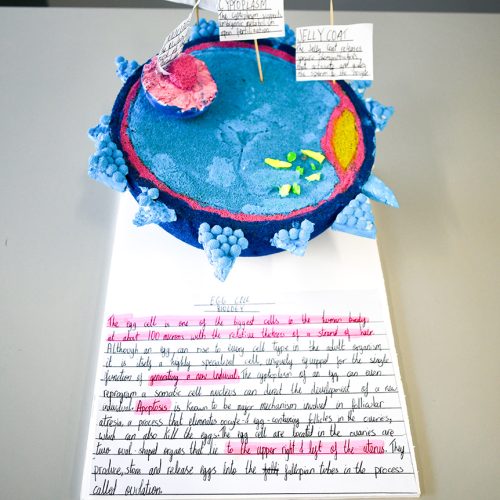 CYTOPLASM
The cytoplasm supports
JELLY COAT
The Jelly coat releases
EGG CELL
BIOLOGY
The egg cell is one of the biggest cells in the human body,
at about 100 microns with the relative thickness of a strand of hair.
Although an egg can rise to every cell type in the adult organism
it is itself a highly specialised cell uniquely equipped for the single
function of generating a new individual. The cytoplasm of an egg can even
reprogram a somatic cell nucleus and direct the development of a new
individual. Apoptosis is known to be major mechanism involved in follicular
atresia, a process that eliminates oocyte & egg-containing follicles in the ovaries,
which can also kill the eggs. The egg cell are located in the ovaries are
two oval-shaped organs that lie to the upper right & left of the uterus. They
produce, store and release eggs into the fallopian tubes in the process
called ovulation.